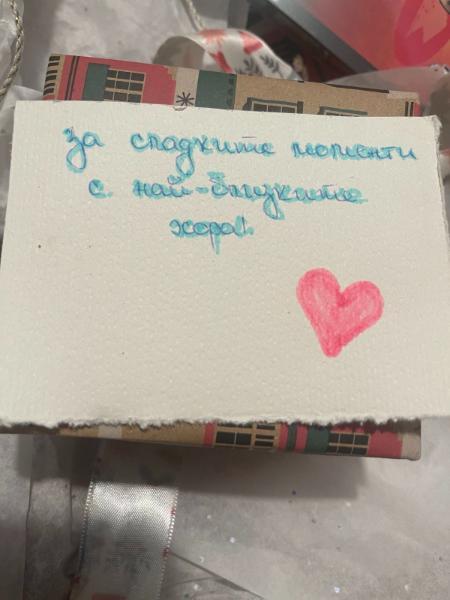 за сладките моменти
с най-близките
хора!